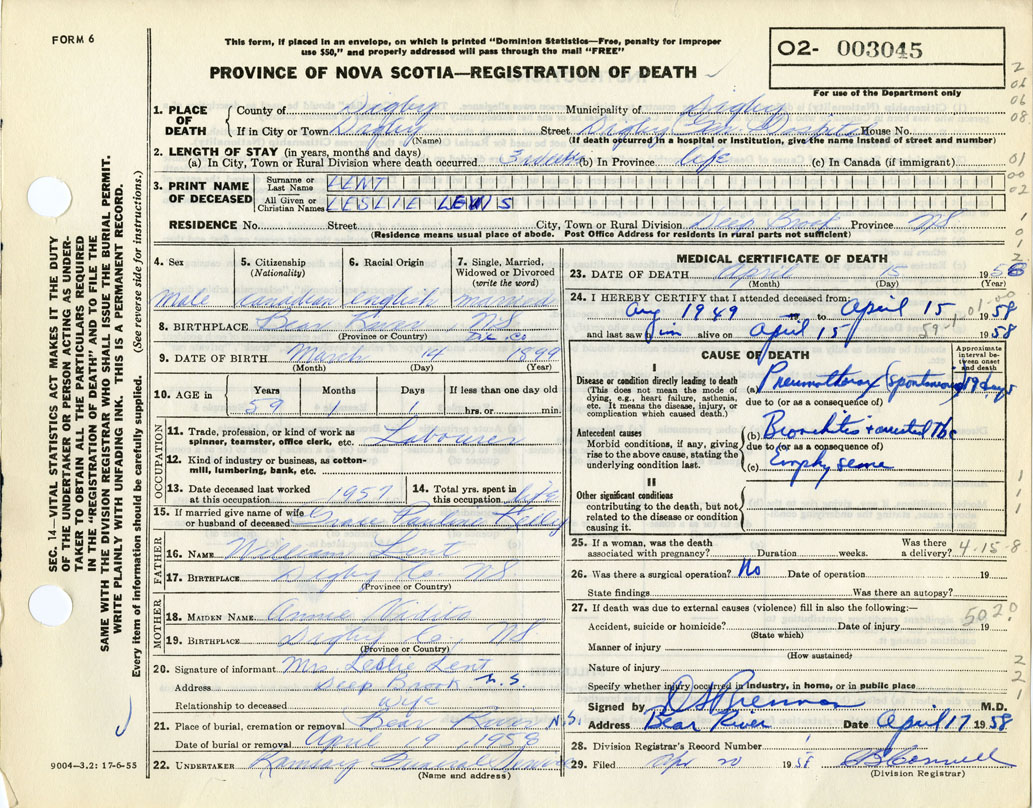 FORM 6
This form, if placed in an envelope, on which is printed "Dominion Statistics—Free, penalty for improper
use $50," and properly addressed will pass through the mail "FREE"
PROVINCE OF NOVA SCOTIA—REGISTRATION OF DEATH
02- 003045
For use of the Department only
1. PLACE OF DEATH County of Digby Municipality of Digby
If in City or Town Digby Street Digby Gen. Hospital House No.
(Name) (If death occurred in a hospital or institution, give the name instead of street and number)
2. LENGTH OF STAY (in years, months and days)
(a) In City, Town or Rural Division where death occurred 3 weeks (b) In Province life (c) In Canada (if immigrant)
3. PRINT NAME OF DECEASED Surname or Last Name LENT
All Given or Christian Names LESLIE LEWIS
RESIDENCE No. Street City, Town or Rural Division Deep Brook Province NS
(Residence means usual place of abode. Post Office Address for residents in rural parts not sufficient)
4. Sex 5. Citizenship (Nationality) 6. Racial Origin 7. Single, Married, Widowed or Divorced (write the word)
Male Canadian English married
8. BIRTHPLACE Bear River, NS
(Province or Country)
9. DATE OF BIRTH March 14 1899
(Month) (Day) (Year)
10. AGE in Years Months Days If less than one day old
59 1 1 hrs. or min.
OCCUPATION
11. Trade, profession, or kind of work as spinner, teamster, office clerk, etc. Labourer
12. Kind of industry or business, as cotton-mill, lumbering, bank, etc.
13. Date deceased last worked at this occupation 1957 14. Total yrs. spent in this occupation life
15. If married give name of wife or husband of deceased Grace Pauline Kelly
FATHER
16. NAME William Lent
17. BIRTHPLACE Digby Co. NS
(Province or Country)
MOTHER
18. MAIDEN NAME Annie
19. BIRTHPLACE Digby Co. NS
(Province or Country)
20. Signature of informant Mrs Leslie Lent
Address Deep Brook N.S.
Relationship to deceased wife
21. Place of burial, cremation or removal Bear River N.S.
Date of burial or removal April 1958
22. UNDERTAKER Ramsay Funeral
(Name and address)
MEDICAL CERTIFICATE OF DEATH
23. DATE OF DEATH April 15 1958
(Month) (Day) (Year)
24. I HEREBY CERTIFY that I attended deceased from:
Aug 1949 to April 15 1958
and last saw him alive on April 15 1958
59-1-01-00
CAUSE OF DEATH
Approximate interval between onset and death
I
Disease or condition directly leading to death
(This does not mean the mode of dying, e.g., heart failure, asthenia, etc. It means the disease, injury, or complication which caused death.)
(a) Pneumothorax (spontaneous) 19 days
due to (or as a consequence of)
Antecedent causes
Morbid conditions, if any, giving rise to the above cause, stating the underlying condition last.
(b) Bronchitis
due to (or as a consequence of)
(c) Emphysema
II
Other significant conditions
contributing to the death, but not related to the disease or condition causing it.
25. If a woman, was the death associated with pregnancy? Duration weeks. Was there a delivery? 4-15-8
26. Was there a surgical operation? No Date of operation 19
State findings Was there an autopsy?
27. If death was due to external causes (violence) fill in also the following:—
5020
Accident, suicide or homicide? Date of injury 19
(State which)
Manner of injury
(How sustained)
Nature of injury
Specify whether injury occurred in industry, in home, or in public place
Signed by M.D.
Address Bear River Date April 17 1958
28. Division Registrar's Record Number
29. Filed Apr 20 1958
(Division Registrar)
SEC. 14—VITAL STATISTICS ACT MAKES IT THE DUTY
OF THE UNDERTAKER OR PERSON ACTING AS UNDER-
TAKER TO OBTAIN ALL THE PARTICULARS REQUIRED
IN THE "REGISTRATION OF DEATH" AND TO FILE THE
SAME WITH THE DIVISION REGISTRAR WHO SHALL ISSUE THE BURIAL PERMIT.
WRITE PLAINLY WITH UNFADING INK. THIS IS A PERMANENT RECORD.
Every item of information should be carefully supplied. (See reverse side for instructions.)
9004—3.2: 17-6-55